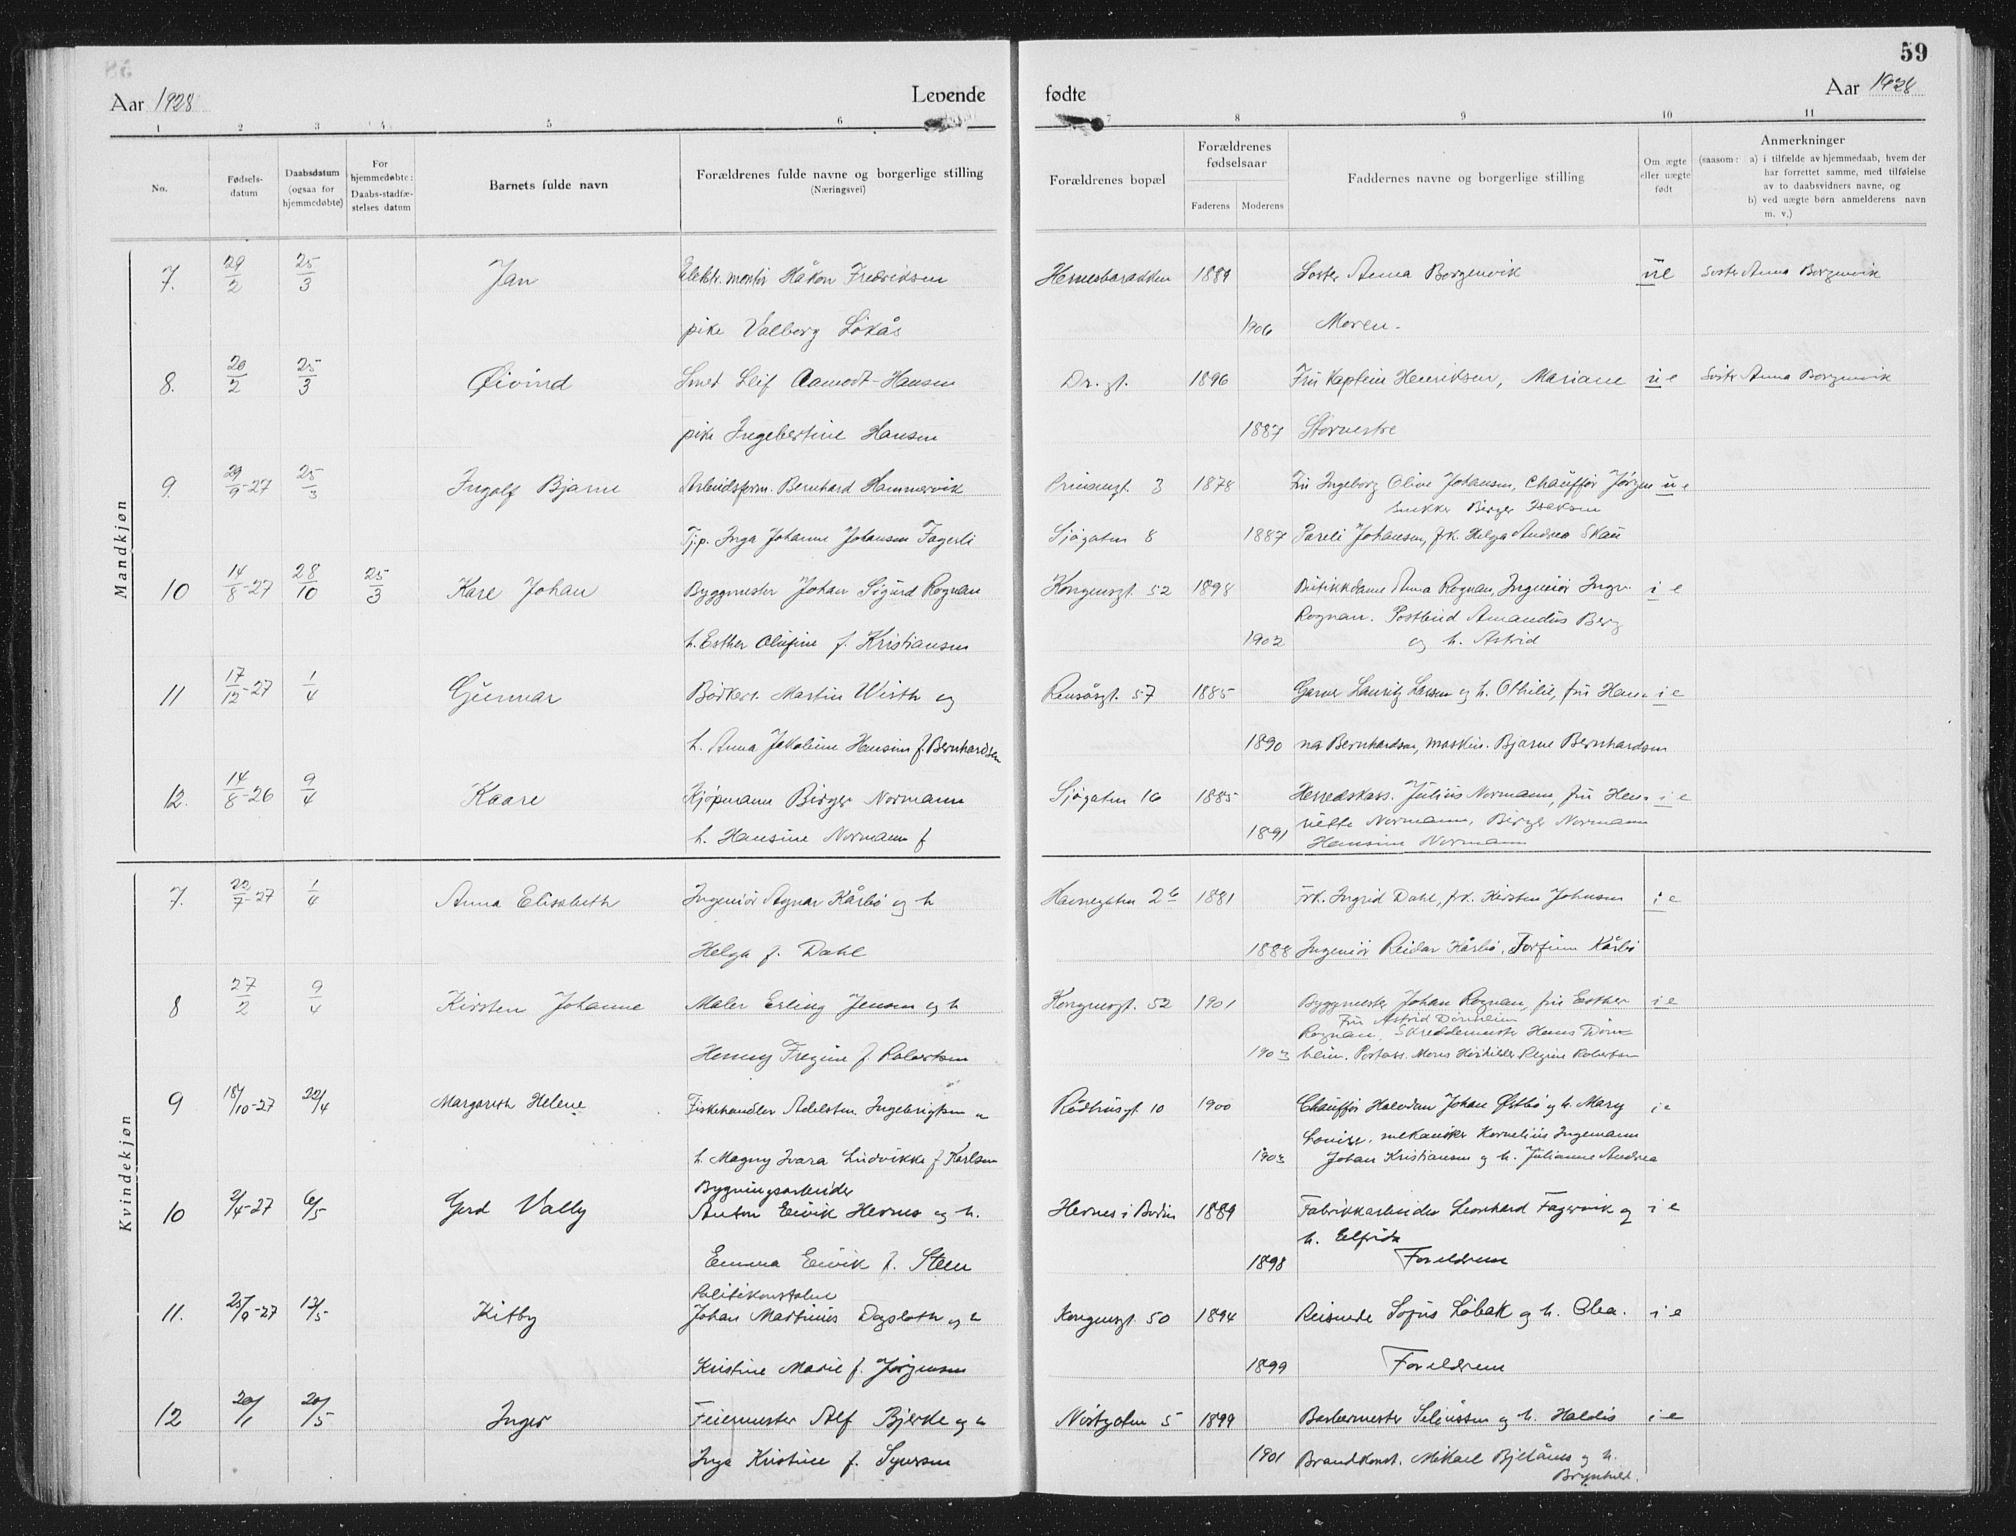 59
Aar 1928 Levende fødte Aar 1928
1 2 3 4 5 6 7 8 9 10 11
No.
Fødsels-
datum
Daabsdatum
(ogsaa for
hjemmedøbte)
For
hjemmedøbte:
Daabs-stadfæ-
stelses datum
Barnets fulde navn
Forældrenes fulde navne og borgerlige stilling
(Næringsvei)
Forældrenes bopæl
Forældrenes
fødselsaar
Faderens Moderens
Faddernes navne og borgerlige stilling
Om ægte
eller uægte
født
Anmerkninger
(saasom: a) i tilfælde av hjemmedaab, hvem der
har forrettet samme, med tilføielse
av to daabsvidners navne, og
b) ved uægte børn anmelderens navn
m. v.)
Mandkjøn
7. 29/2 25/3 Jan Elektr. montør Håkon Fredriksen Hernesbarakken 1889 Søster Anna Borgenvik ue Søster Anna Borgenvik
pike Valborg Løkås 1906 Moren.
8. 20/2 25/3 Øivind Smed Leif Aamodt-Hansen Dr. gt. 1896 Fru Kaptein Henriksen, Mariane ue Søster Anna Borgenvik
pike Ingebertine Hansen 1887 Stornestre
9. 29/9-27 25/3 Ingolf Bjarne Arbeidsform. Bernhard Hammervik Prinsengt. 3 1878 Fru Ingeborg Oline Johansen, Chauffør Jørgen ue
Snekker Birger Isaksen
Tj.p. Inga Johanne Johansen Fagerli Sjøgaten 8 1887 Pareli Johansen, frk. Helga Andrea Skau
10 14/8-27 28/10 25/3 Kare Johan Byggmester Johan Sigurd Rognan Kongensgt. 52 1898 Butikkdame Anna Rognan, Ingeniør Ingv. ie
Rognan. Postbud Amandus Berg
h. Esther Olufine f. Kristiansen 1902 og h. Astrid
11 17/12-27 1/4 Gunnar Bødker. Martin Wirth og Rensåsgt. 57 1885 Garver Lauritz Larsen og h. Othilie, fru Han- ie
h. Anna Jakobine Hansine f Bernhardsen 1890 na Bernhardsen, maskin. Bjarne Bernhardsen
12. 14/8-26 9/4 Kaare Kjøpmann Birger Normann Sjøgaten 16 1885 Herredskass. Julius Normann, fru Hen- ie
h. Hansine Normann f 1891 riette Normann, Birger Normann
Hansine Normann
Kvindekjøn
7. 22/7-27 1/4 Anna Elisabeth Ingeniør Agnar Kårbø og h Havnegaten 2b 1881 Frk. Ingrid Dahl, frk. Kirsten Johnsen ie
Helga f. Dahl 1888 Ingeniør Reidar Kårbø, Torfinn Kårbø
8 27/2 9/4 Kirsten Johanne Maler Erling Jensen og h Kongensgt. 52 1901 Byggmester Johan Rognan, fru Esther ie
Fru Astrid Dönnheim
Rognan, Skreddermester Hans Dönn-
Henny Fregine f. Robertsen 1903 heim. Postass. Mons Regine Robertsen
9 18/10-27 22/4 Margareth Helene Fiskehandler Adelsten Ingebrigtsen og Rådhusgt 10 1900 Chauffør Halvdan Johan Østbø og h. Mary ie
Louise. mekaniker Kornelius Ingemann
h. Magny Ivara Ludvikke f Karlsen 1903 Johan Kristiansen og h. Julianne Andrea
Bygningsarbeider
10 2/4-27 6/5 Gerd Valby Anton Eivik Hernes og h. Hernes i Bodin 1889 Fabrikkarbeider Leonhard Fagervik og ie
h. Elfrida
Emma Eivik f. Steen 1898 Foreldrene
Politikonstabel
11. 25/9-27 13/5 Kitby Johan Martinus Dagsloth og h Kongensgt. 50 1894 Reisende Sofus Løbak og h. Olea. ie
Kristine Marie f. Jørgensen 1899 Foreldrene
12 20/1 20/5 Inger Feiermester Alf Bjerke og h Nørtgaten 5 1899 Barbermester Seliussen og h. Haldis ie
Inga Kristine f. Syversen 1901 Brandkonst. Mikael Bjelånes og h.
Brynhild.